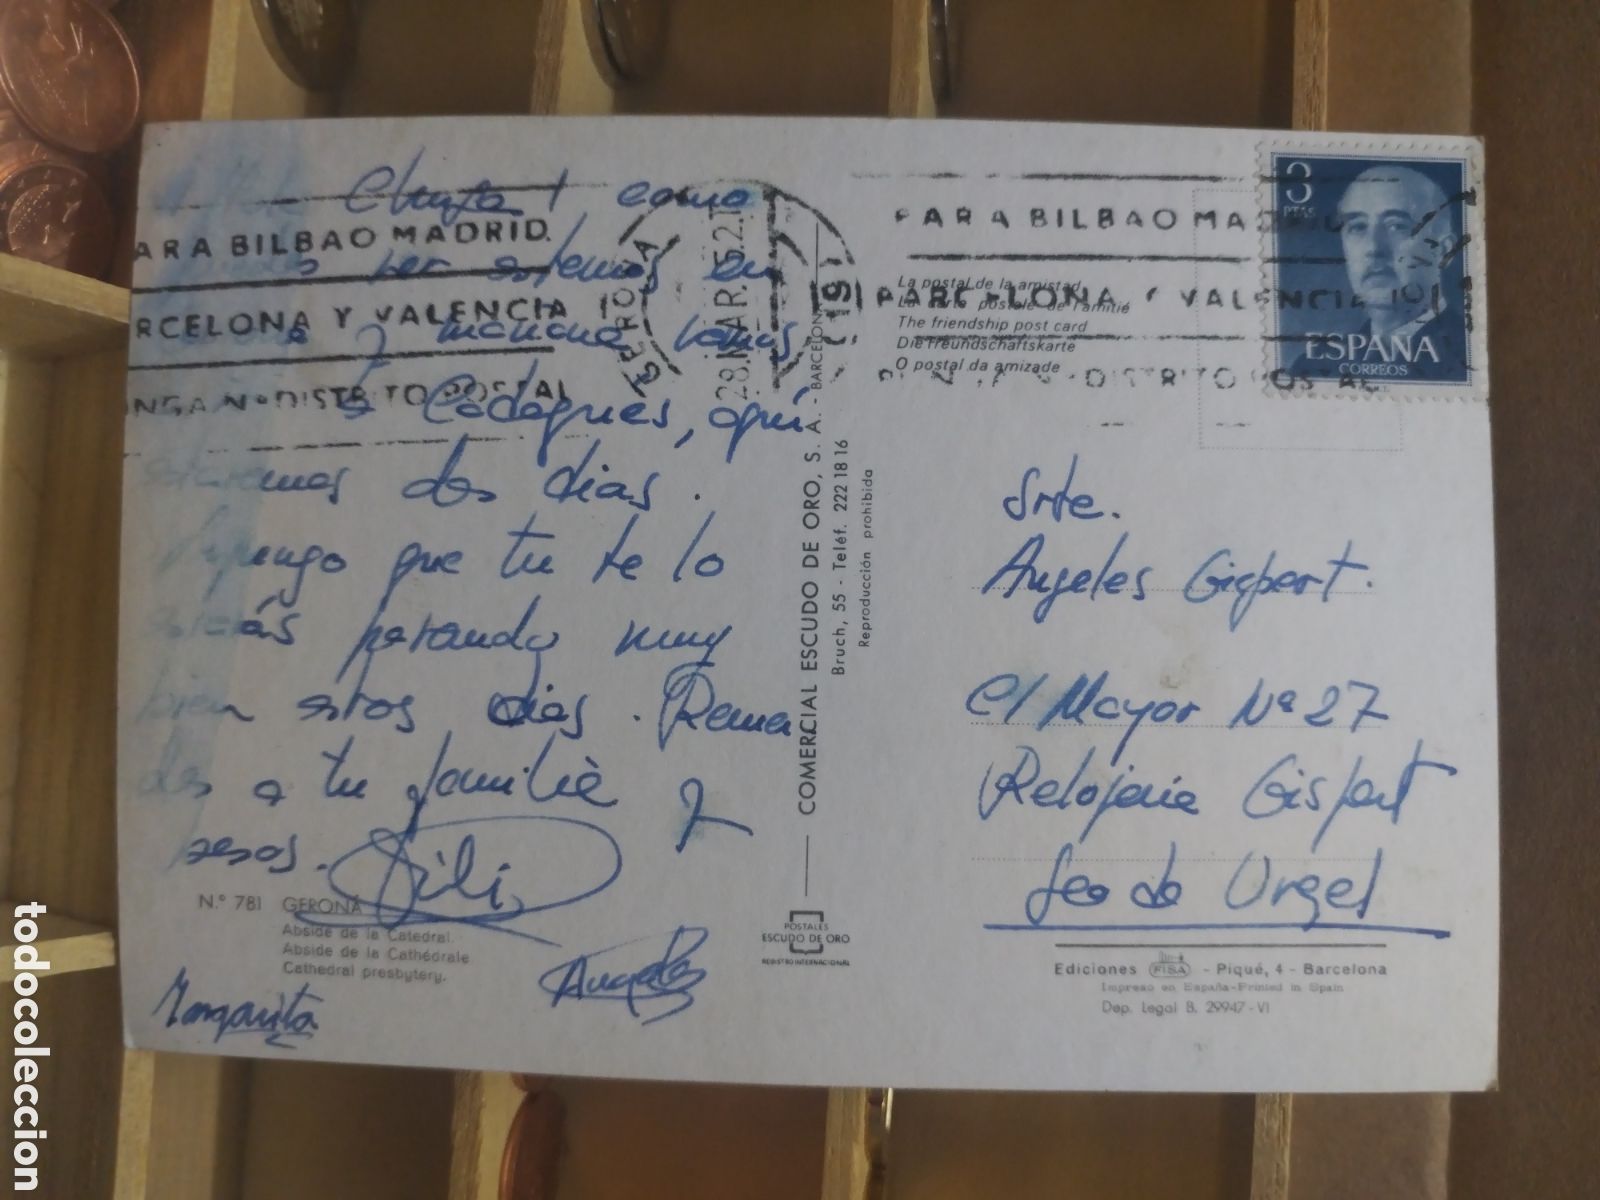 como
ARA BILBAO MADRID.
por estemos en
RCELONA Y VALENCIA
y mañana vamos
NGA Nº DISTRITO POSTAL
a Cadaques, aqui
estaremos dos dias.
Supongo que tu te lo
estarás pasando muy
bien estos dias. Recuer
dos a tu familia y
besos.
Pili
Angeles
Margarita
N.º 781 GERONA
Abside de la Catedral.
Abside de la Cathédrale
Cathedral presbytery.
GERONA
28.MAR.
COMERCIAL ESCUDO DE ORO, S. A. - BARCELONA
Bruch, 55 - Teléf. 222 18 16
Reproducción prohibida
POSTALES
ESCUDO DE ORO
REGISTRO INTERNACIONAL
PARA BILBAO MADRID
PARCELONA Y VALENCIA
DISTRITO POSTAL
La postal de la amistad
La carte postale de l'amitié
The friendship post card
Die Freundschaftskarte
O postal da amizade
3
PTAS
ESPAÑA
CORREOS
Srta.
Angeles Gispert.
C/ Mayor Nº 27
Relojeria Gispert
Seo de Urgel
Ediciones FISA - Piqué, 4 - Barcelona
Impreso en España-Printed in Spain
Dep. Legal B. 29947-VI
todocoleccion